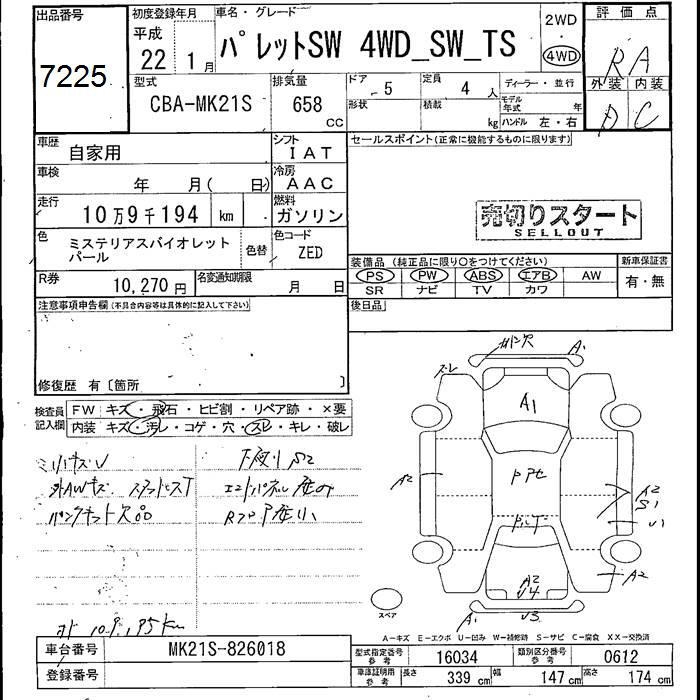 出品番号
7225
初度登録年月
平成
22 1月
車名・グレード
パレットSW 4WD_SW_TS
2WD
・
4WD
評価点
RA
外装 内装
D C
型式
CBA-MK21S
排気量
658 CC
ドア 5
形状
定員 4 人
積載 kg
ディーラー・並行
モデル年式 年
ハンドル 左・右
車歴
自家用
シフト
IAT
車検
年 月( 日)
冷房
AAC
走行
10万9千194 km
燃料
ガソリン
色
ミステリアスバイオレット
パール
色替
色コード
ZED
R券
10,270円
名変通知期限
月 日
セールスポイント(正常に機能するものに限ります)
売切りスタート
SELLOUT
装備品(純正品に限り○をつけてください)
新車保証書
PS PW ABS エアB AW
SR ナビ TV カワ
有・無
後日品
注意事項申告欄(不具合内容等は具体的に記入して下さい)
修復歴 有〔箇所 〕
検査員
記入欄
FW キズ・飛石・ヒビ割・リペア跡・×要
内装 キズ・汚レ・コゲ・穴・スレ・キレ・破レ
下廻りS2
外AWキズ
パンクキット欠品
A1
A2
A2
S1
U1
A2
A2
U4
A1
U3
スペア
A-キズ E-エクボ U-凹み W-補修跡 S-サビ C-腐食 XX-交換済
車台番号
MK21S-826018
登録番号
型式指定番号
参考
16034
類別区分番号
参考
0612
車庫証明用
参考
長さ 339 cm
幅 147 cm
高さ 174 cm